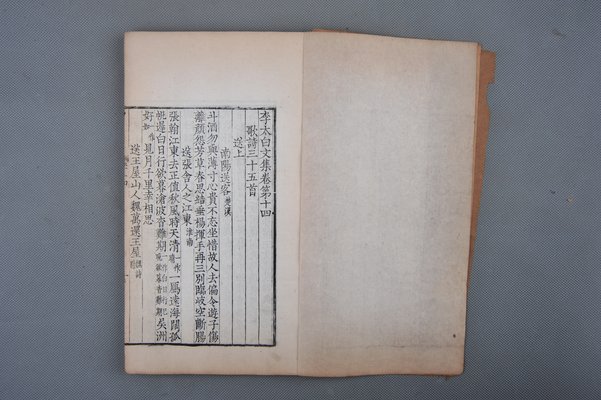 李太白文集卷第十四
歌詩三十五首
送上
南陽送客
斗酒勿與薄寸心貴不忘坐惜故人去偏令遊子傷
離顏怨芳草春思結垂楊揮手再三別臨岐空斷腸
送張舍人之江東
張翰江東去正值秋風時天清一作一鴈遠海闊孤
帆遲白日行欲暮滄波杳難期吳洲
好見月千里幸相思
送王屋山人魏萬還王屋